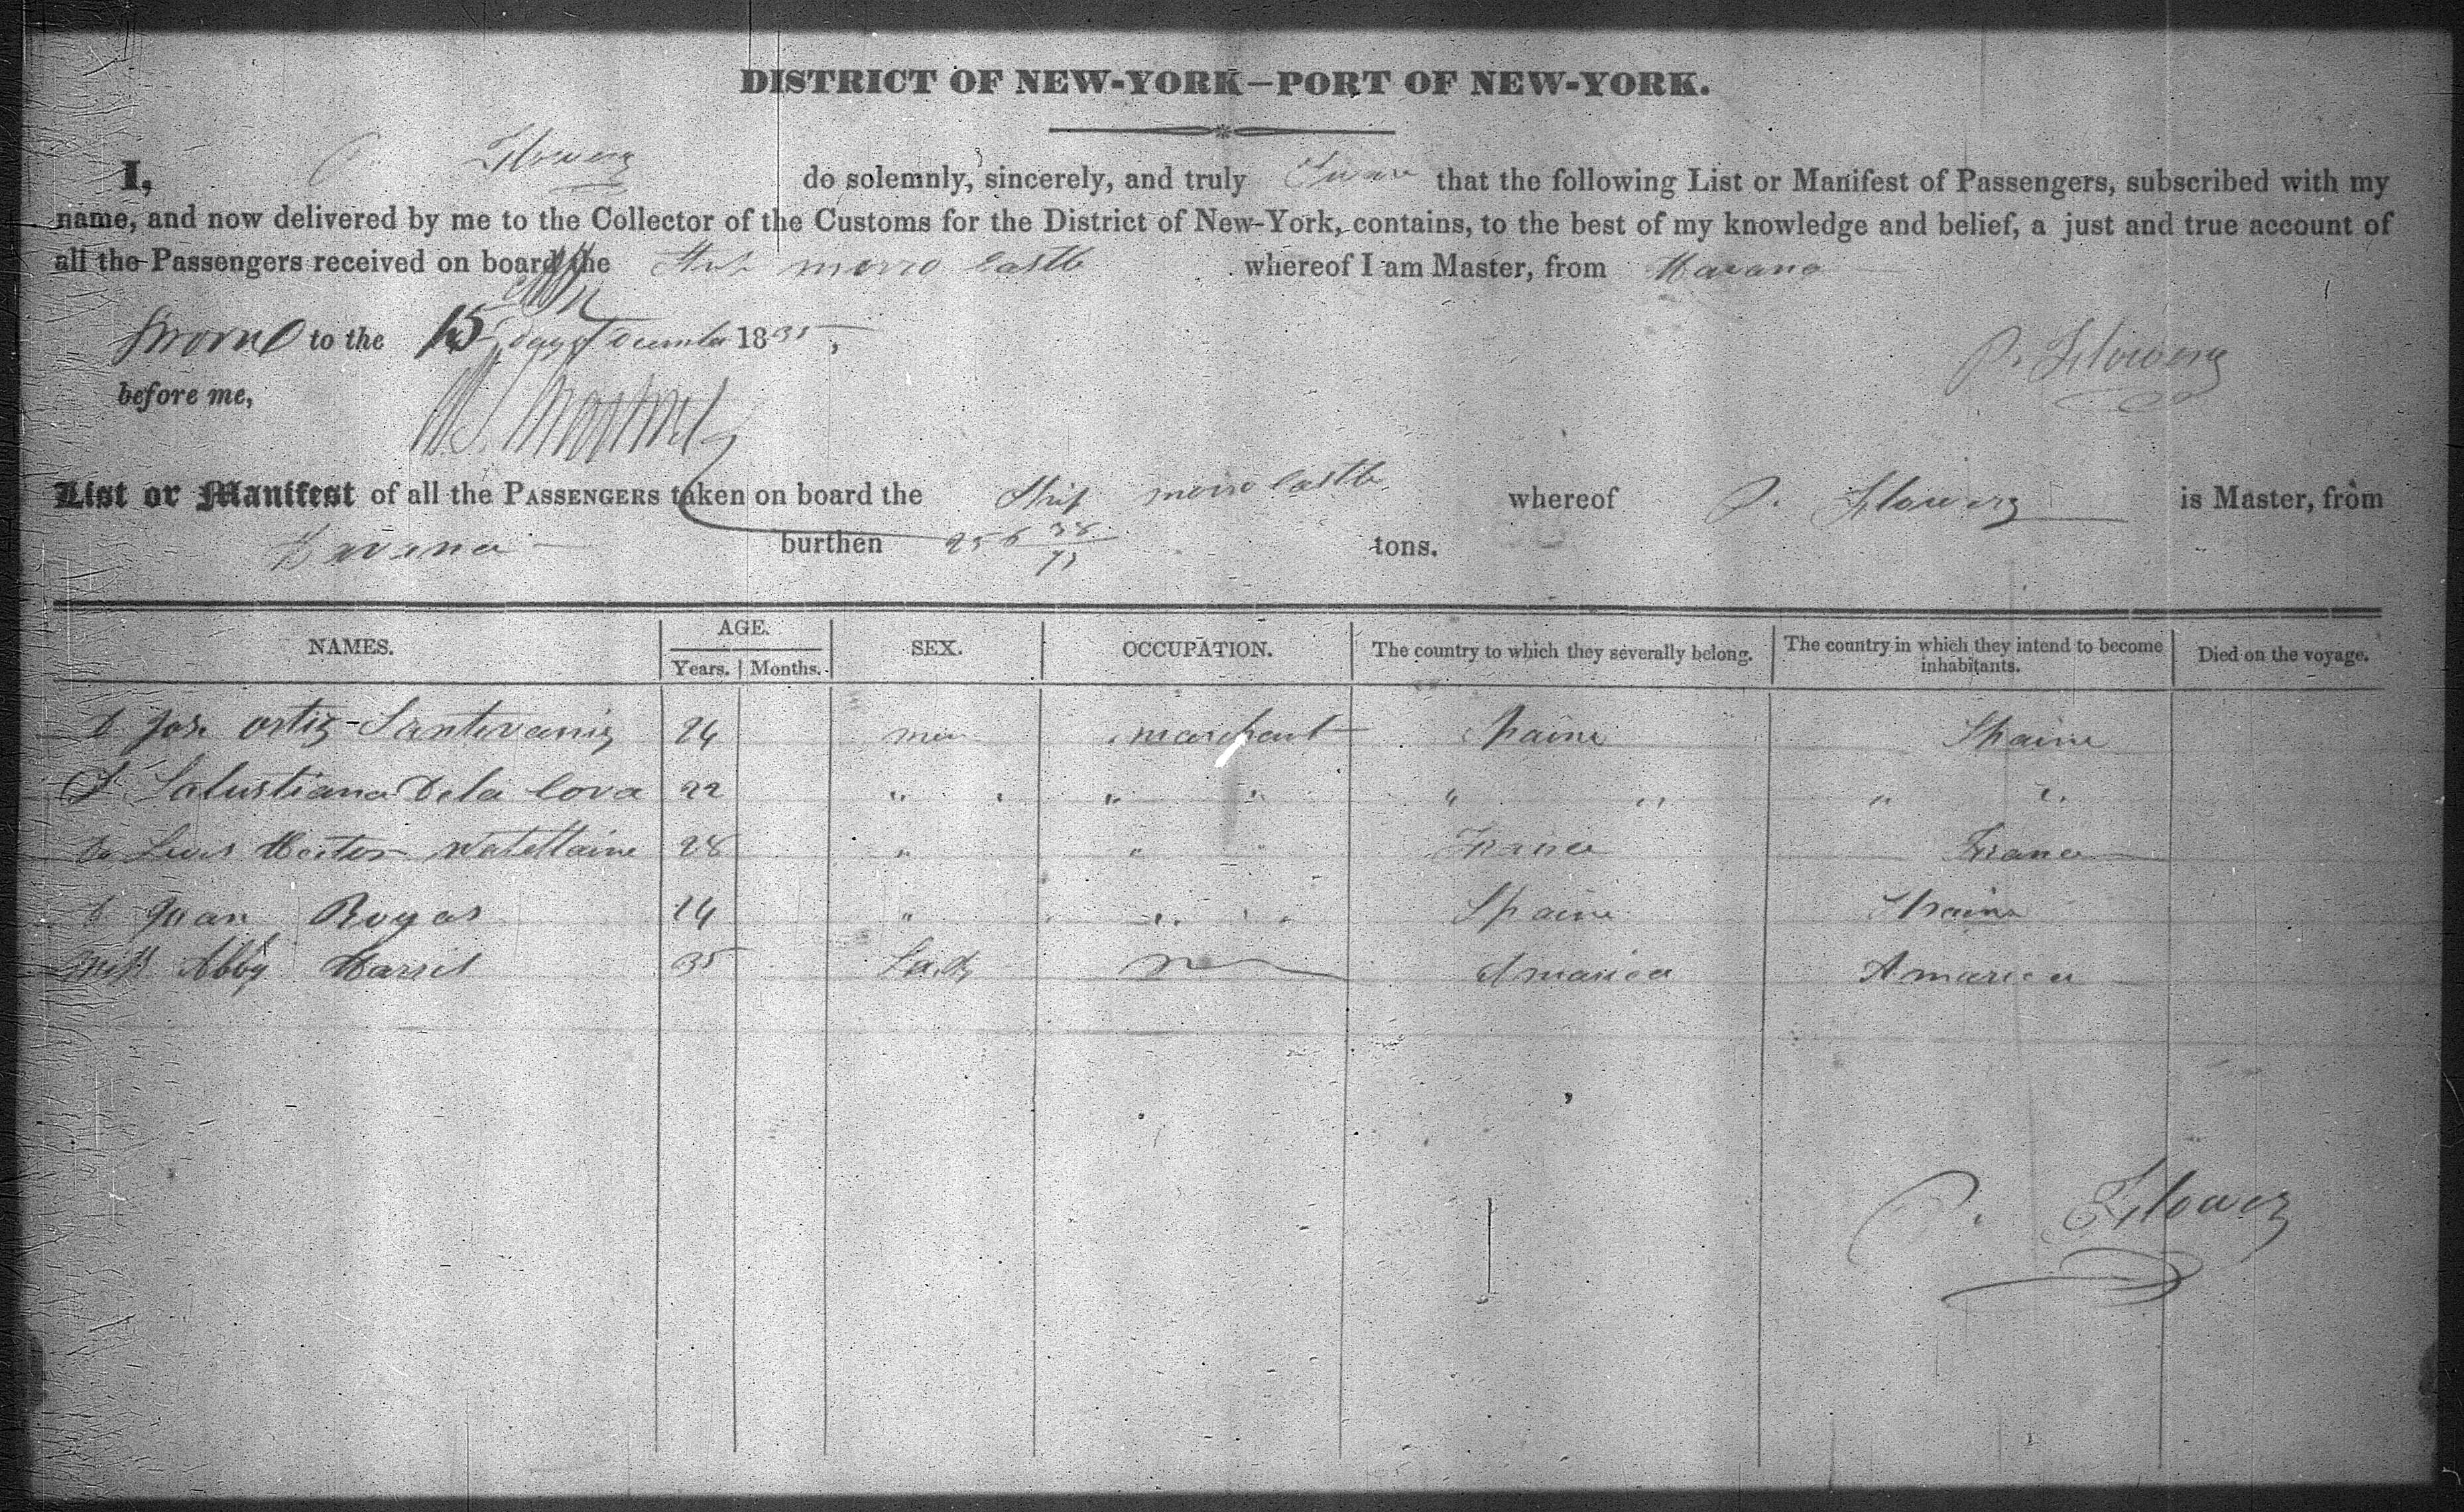 DISTRICT OF NEW-YORK—PORT OF NEW-YORK.
I, P. Flowery do solemnly, sincerely, and truly Sware that the following List or Manifest of Passengers, subscribed with my
name, and now delivered by me to the Collector of the Customs for the District of New-York, contains, to the best of my knowledge and belief, a just and true account of
all the Passengers received on board the Ship morro Castle whereof I am Master, from Havana
Sworne to the 15 day of December 1835,
P. Flowery
before me,
List or Manifest of all the PASSENGERS taken on board the Ship morro Castle whereof P. Flowery is Master, from
Havana burthen 256 38/95 tons.
NAMES. AGE. SEX. OCCUPATION. The country to which they severally belong. The country in which they intend to become inhabitants. Died on the voyage.
Years. Months.
D Jos. Ortiz Santevaniz 24 men marchant Spaine Spaine
D Salustiana De la Cova 22 " " " " " " "
Do Luis Hector 28 " " France France
D Juan Rogas 14 " " " Spaine Spaine
Miss Abby Harris 35 Lady Amarica Amarica
P. Flowery